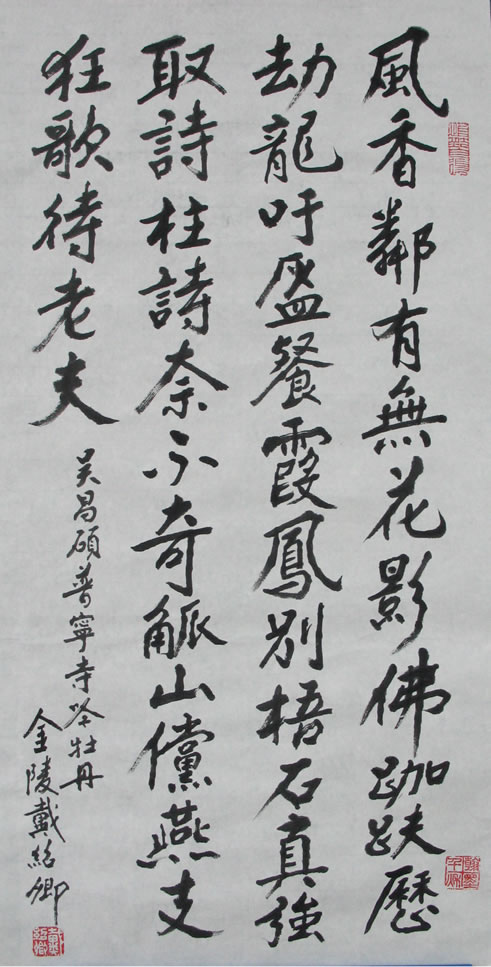 風香鄰有無花影佛跏趺歷
劫龍吁盔餐霞鳳別梧石真強
取詩柱詩奈不奇觚山儻燕支
狂歌待老夫
吴昌碩普寧寺吟牡丹
金陵戴紹卿